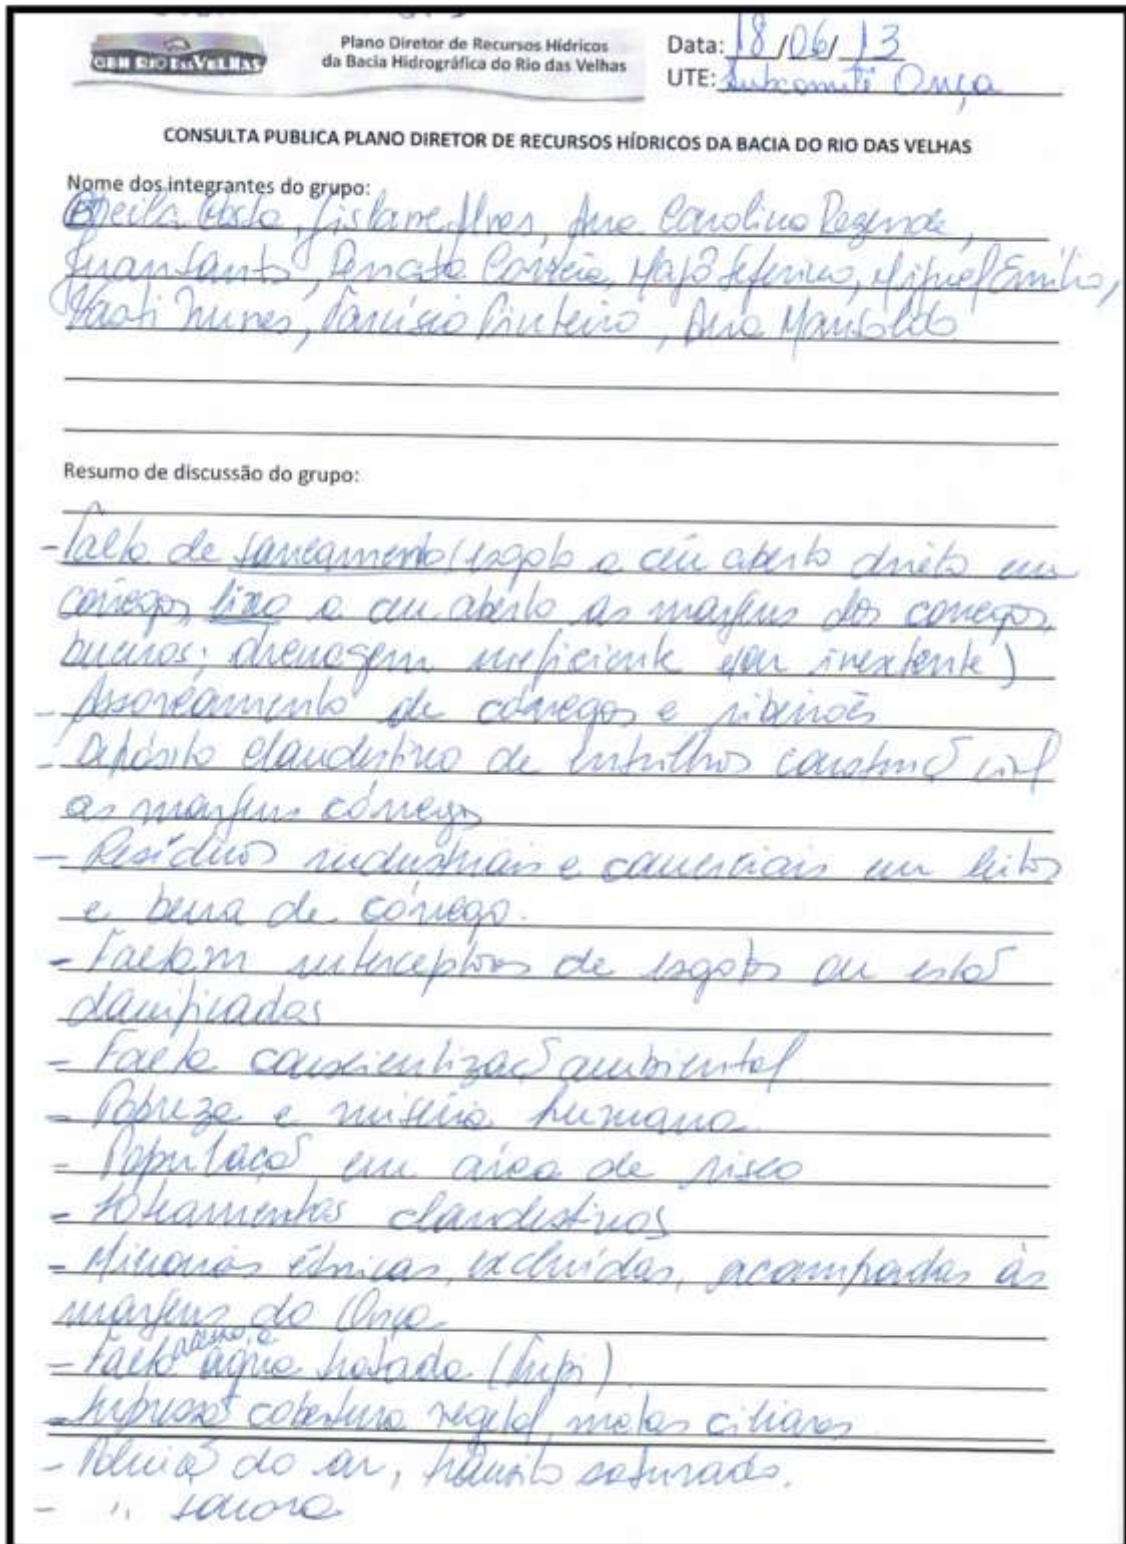 CBH RIO DAS VELHAS
Plano Diretor de Recursos Hídricos
da Bacia Hidrográfica do Rio das Velhas
Data: 18/06/13
UTE: Subcomitê Onça
CONSULTA PUBLICA PLANO DIRETOR DE RECURSOS HÍDRICOS DA BACIA DO RIO DAS VELHAS
Nome dos integrantes do grupo:
Costa, Gislane Alves, Ana Carolina Rezende,
Renata Correia, Majô Zeferino, Miguel Emílio,
Nunes, Tarcísio Pinheiro, Ana Mansoldo
Resumo de discussão do grupo:
- Falta de saneamento (esgoto a céu aberto direto em
córregos, lixo a céu aberto as margens dos córregos,
bueiros; drenagem ineficiente e/ou inexistente)
- Assoreamento de córregos e ribeirões
- Depósito clandestino de entulhos construçã civil
as margens córregos
- Resíduos industriais e comerciais em leitos
e beira de córrego.
- Faltam interceptores de esgotos ou estã
danificados
- Falta conscientizaçã ambiental
- Pobreza e miséria humana
- Populaçaõ em área de risco
- Loteamentos clandestinos
- Minorias étnicas, excluídas, acampadas às
margens do Onça
- Falta acesso a água tratada (Tupi)
- cobertura vegetal, matas ciliares
- Poluiçã do ar, trânsito saturado.
- " sonora